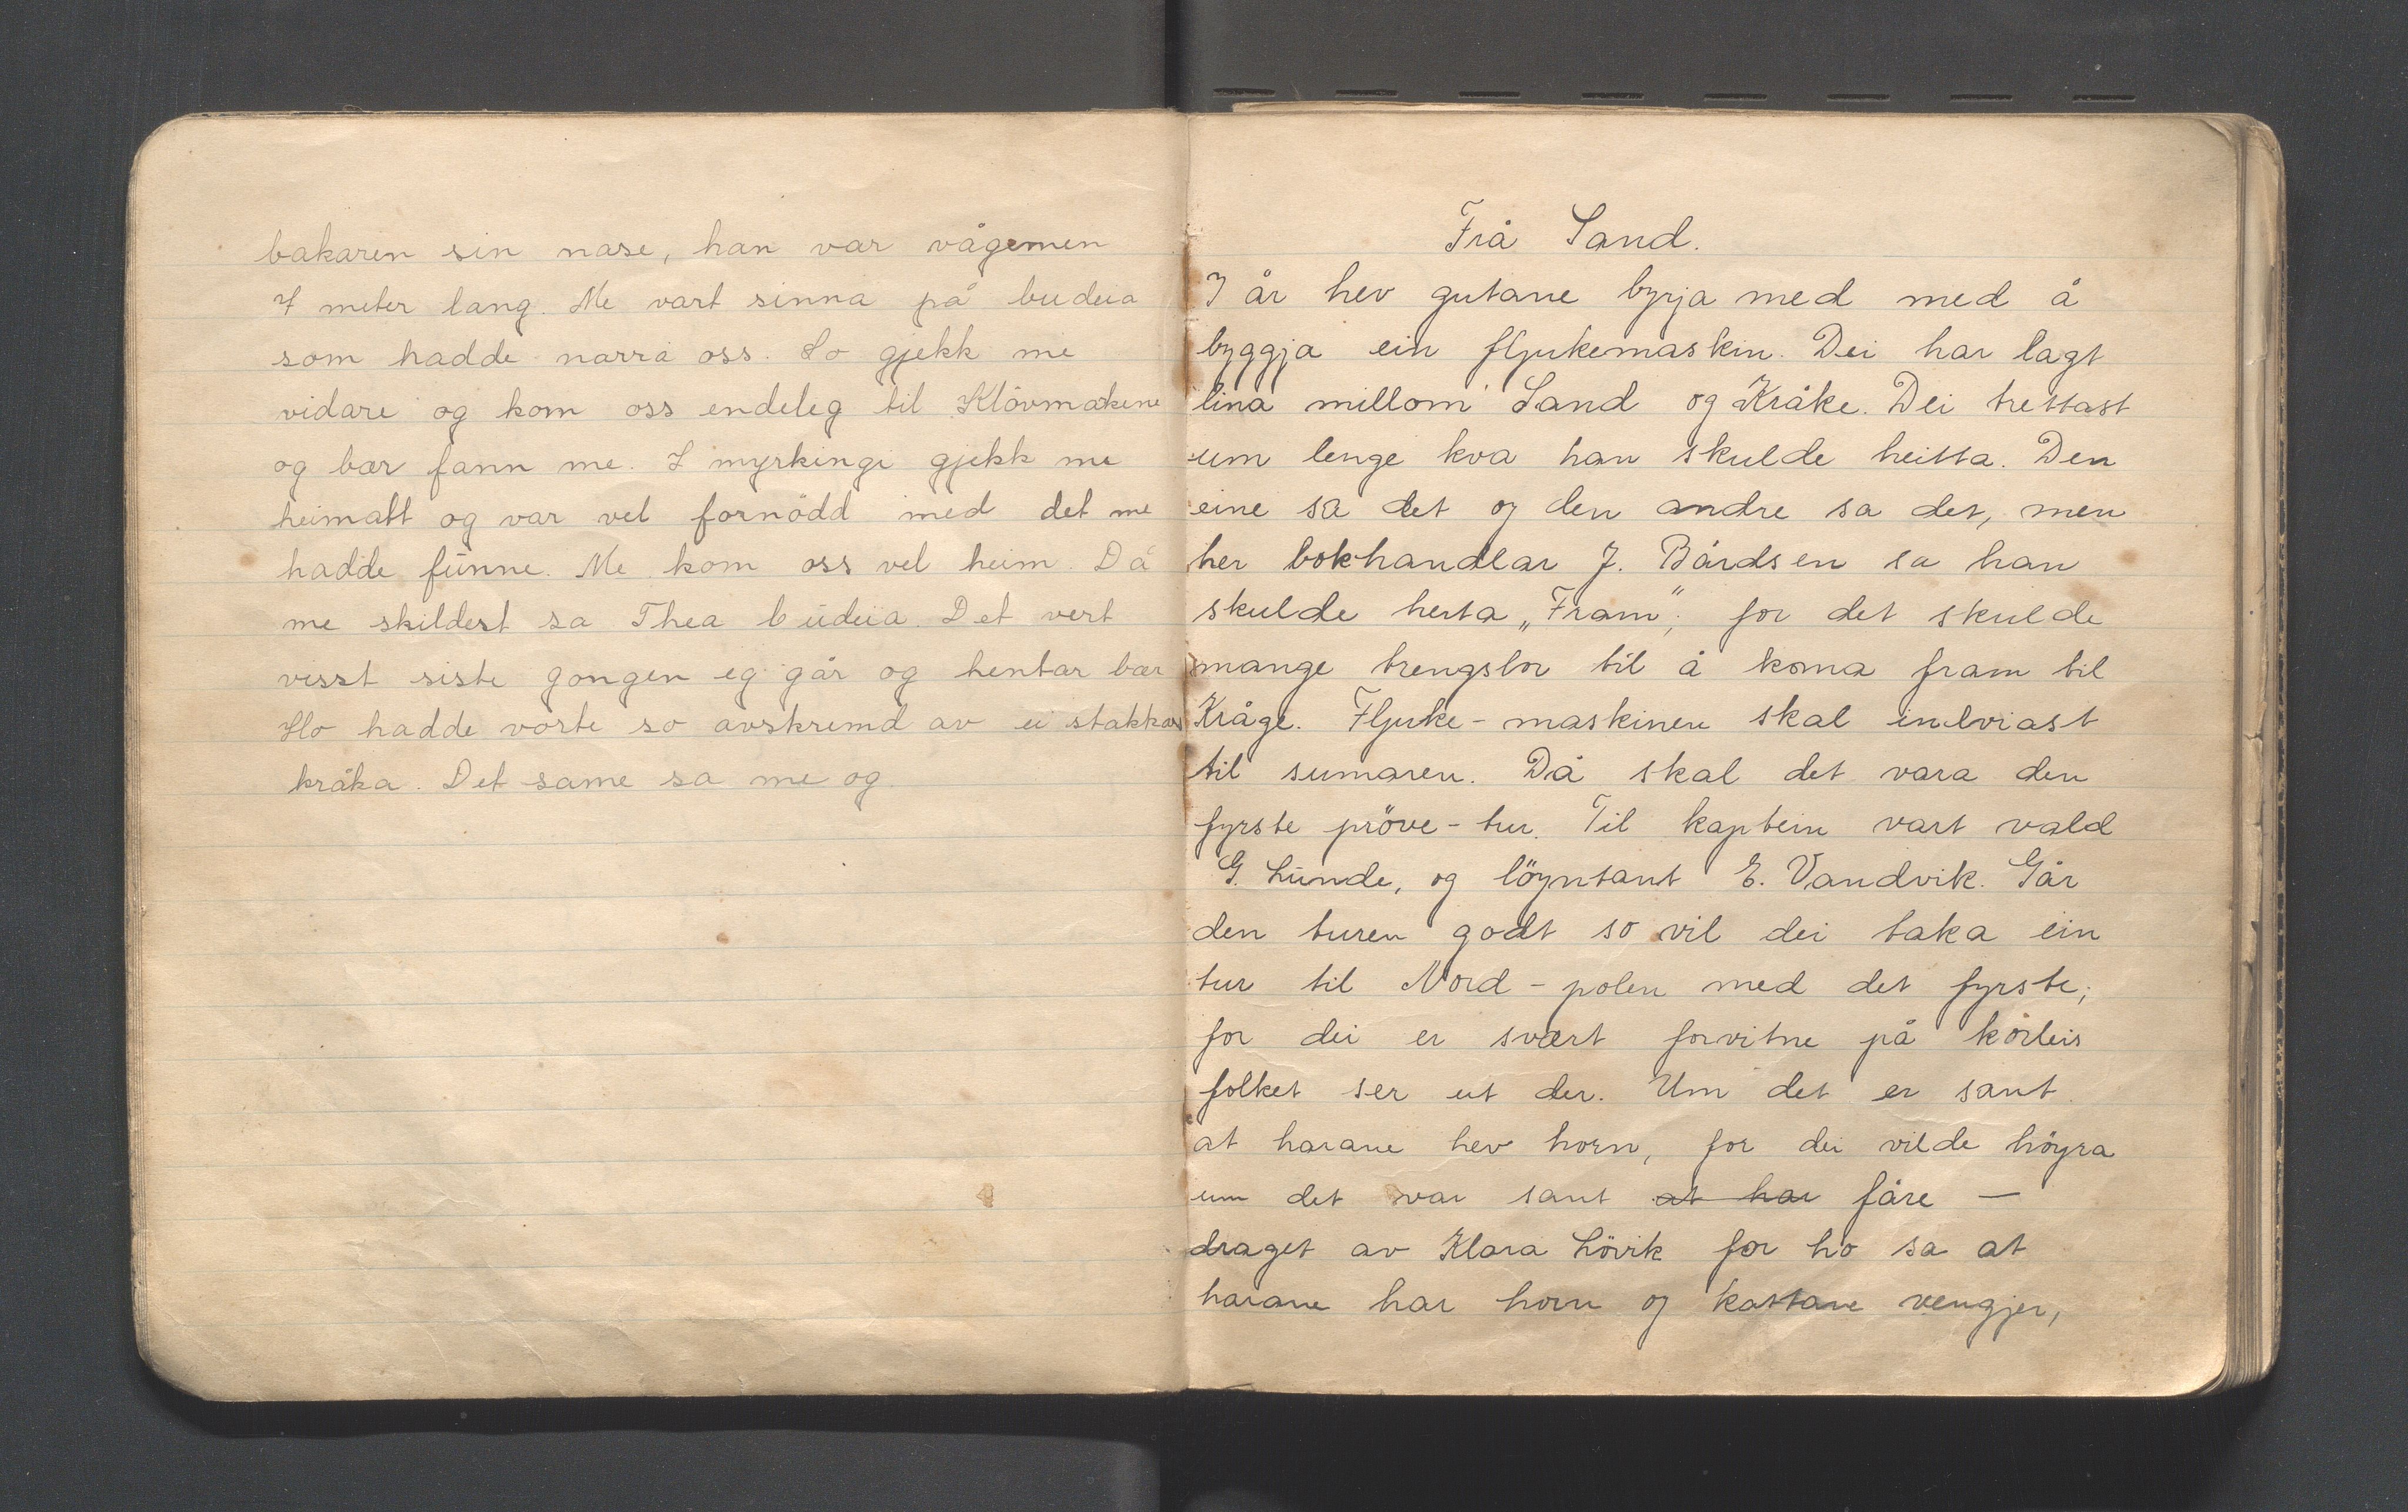 bakaren sin nase, han var vågemen
7 meter lang. Me vart sinna på budeia
som hadde narra oss. So gjekk me
vidare og kom oss endeleg til Klövmarkene
og bær fann me. I myrkingi gjekk me
heimatt og var vel fornödd med det me
hadde funne. Me kom oss vel heim. Då
me skildest sa Thea budeia. Det vert
visst siste gongen eg går og hentar bær
Ho hadde vorte so avskremd av ei stakkars
kråka. Det same sa me og.
Frå Sand.
I år hev gutane byrja med med å
byggja ein fljukemaskin. Dei har lagt
lina millom Sand og Kråke. Dei trettast
um lenge kva han skulde heitta. Den
eine sa det og den andre sa det, men
her bokhandlar J. Bårdsen sa han
skulde heita „Fram“; for det skulde
mange trengslor til å koma fram til
Kråge. Fljuke-maskinen skal innviast
til sumaren. Då skal det vara den
fyrste pröve-tur. Til kaptein vart vald
G. Lunde, og löyntant E. Vandvik. Går
den turen godt so vil dei taka ein
tur til Nord-polen med det fyrste;
for dei er svært forvitne på korleis
folket ser ut der. Um det er sant
at harane hev horn, for dei vilde höyra
um det var sant at har fåre —
draget av Klara Lövik for ho sa at
harane har horn og kattane vengjer,